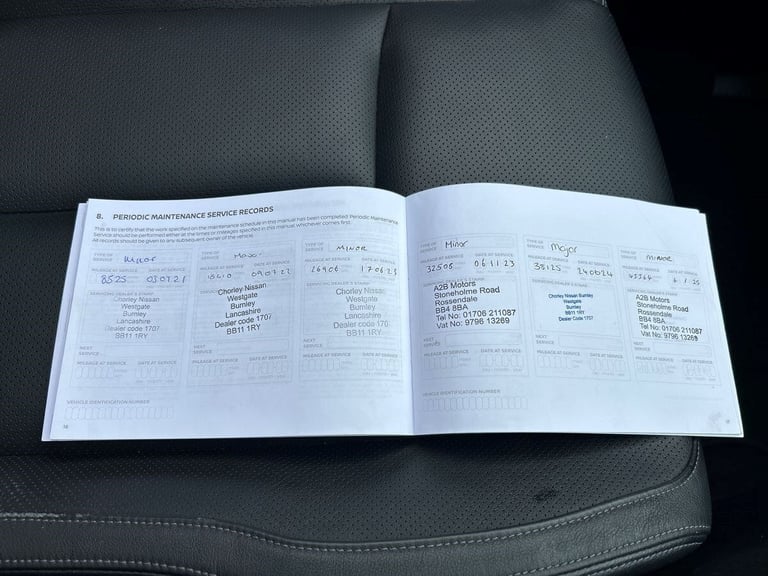 8. PERIODIC MAINTENANCE SERVICE RECORDS
This is to certify that the work specified on the maintenance schedule in this manual has been completed. Periodic Maintenance
Service should be performed either at the times or mileages specified in this manual whichever comes first.
All records should be given to any subsequent owner of the vehicle.
TYPE OF SERVICE Minor
MILEAGE AT SERVICE DATE AT SERVICE
8525 03 07 21
SERVICING DEALER'S STAMP
Chorley Nissan
Westgate
Burnley
Lancashire
Dealer code 1707
BB11 1RY
NEXT SERVICE
MILEAGE AT SERVICE DATE AT SERVICE
TYPE OF SERVICE Major
MILEAGE AT SERVICE DATE AT SERVICE
09 07 22
Chorley Nissan
Westgate
Burnley
Lancashire
Dealer code 1707
BB11 1RY
NEXT SERVICE
MILEAGE AT SERVICE DATE AT SERVICE
TYPE OF SERVICE MINOR
MILEAGE AT SERVICE DATE AT SERVICE
26906 17 06 23
SERVICING DEALER'S STAMP
Chorley Nissan
Westgate
Burnley
Lancashire
Dealer code 170
BB11 1RY
NEXT SERVICE
MILEAGE AT SERVICE DATE AT SERVICE
VEHICLE IDENTIFICATION NUMBER
TYPE OF SERVICE Minor
MILEAGE AT SERVICE DATE AT SERVICE
32505 06 11 23
A2B Motors
Stoneholme Road
Rossendale
BB4 8BA
Tel No: 01706 211087
Vat No: 9796 13269
NEXT SERVICE
MILEAGE AT SERVICE DATE AT SERVICE
TYPE OF SERVICE Major
MILEAGE AT SERVICE DATE AT SERVICE
38125 24 06 24
SERVICING DEALER'S STAMP
Chorley Nissan Burnley
Westgate
Burnley
BB11 1RY
Dealer Code 1707
NEXT SERVICE
MILEAGE AT SERVICE DATE AT SERVICE
TYPE OF SERVICE MINOR
MILEAGE AT SERVICE DATE AT SERVICE
6 1 25
A2B Motors
Stoneholme Road
Rossendale
BB4 8BA
Tel No: 01706 211087
Vat No: 9796 13269
NEXT SERVICE
MILEAGE AT SERVICE DATE AT SERVICE
VEHICLE IDENTIFICATION NUMBER